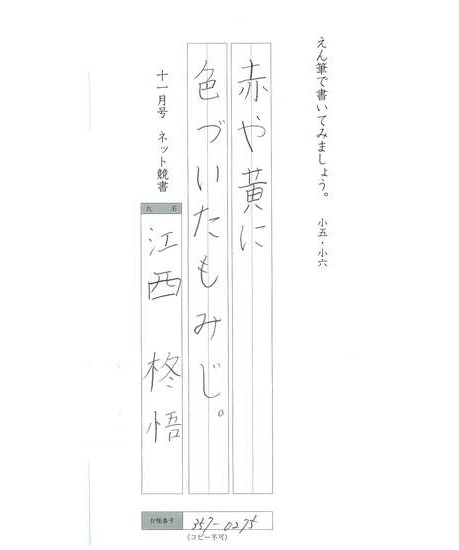 えん筆で書いてみましょう。 小五・小六
赤や黄に
色づいたもみじ。
十一月号 ネット競書
氏 名
江西 柊悟
357-0275
(コピー不可)